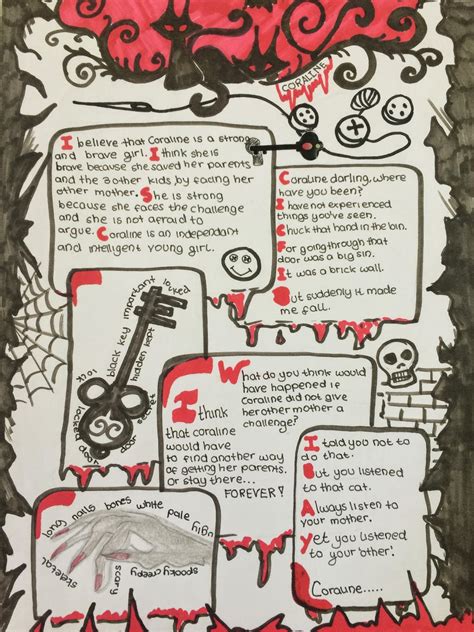 CORALINE
I believe that Coraline is a strong
and brave girl. I think she is
brave because she saved her parents
and the 3 other kids, by facing her
other mother. She is strong
because she faces the challenge
and she is not afraid to
argue. Coraline is an independant
and intelligent young girl.
Coraline darling, where
have you been?
I have not experienced
things you've seen.
Chuck that hand in the bin.
For going through that
door was a big sin.
It was a brick wall.
But suddenly it made
me fall.
lock black key important locked
hidden kept
locked door secrets
What do you think would
have happened if
Coraline did not give
her other mother a
challenge?
I think
that coraline
would have
to find another way
of getting her parents.
Or stay there...
FOREVER!
I told you not to
do that.
But you listened
to that cat.
Always listen to
your mother.
Yet you listened
to your 'other'.
Coraline.....
skeletal long nails bones white pale
scary spooky creepy